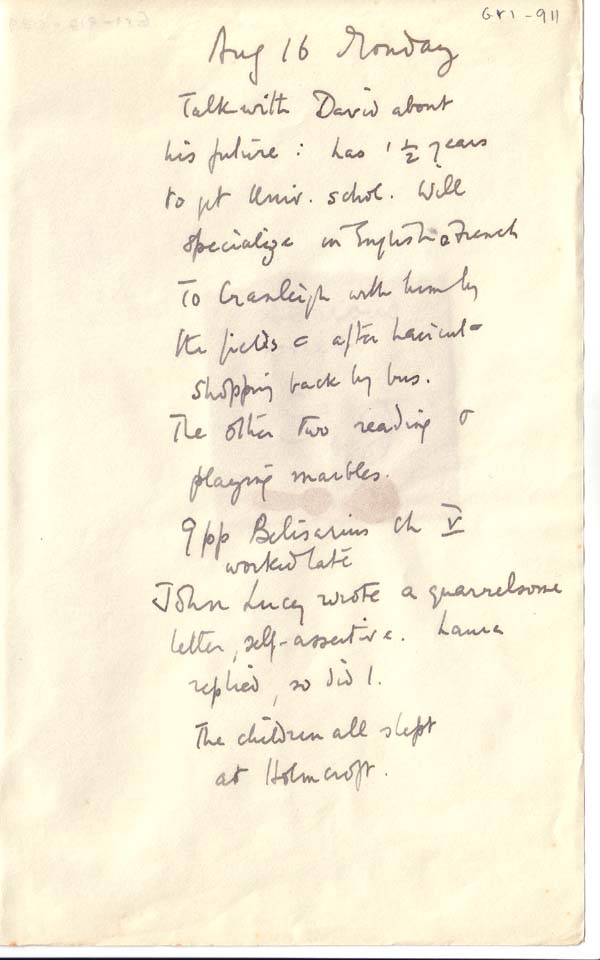 GRI-911
Aug 16 Monday
Talk with David about
his future: has 1½ years
to get Univ. schol. Will
specialize in English & French
To Cranleigh with him by
the fields & after haircut
shopping back by bus.
The other two reading &
playing marbles.
9pp Belisarius ch V
worked late
John Lucey wrote a quarrelsome
letter, self-assertive. Laura
replied, so did I.
The children all slept
at Holmcroft.